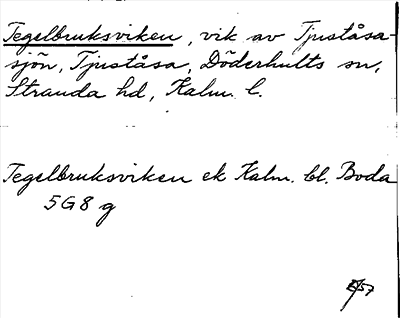 Tegelbruksviken, vik av Tjuståsa-
sjön, Tjuståsa, Döderhults sn,
Stranda hd, Kalm. l.
Tegelbruksviken ek Kalm. bl. Boda
5G8 g